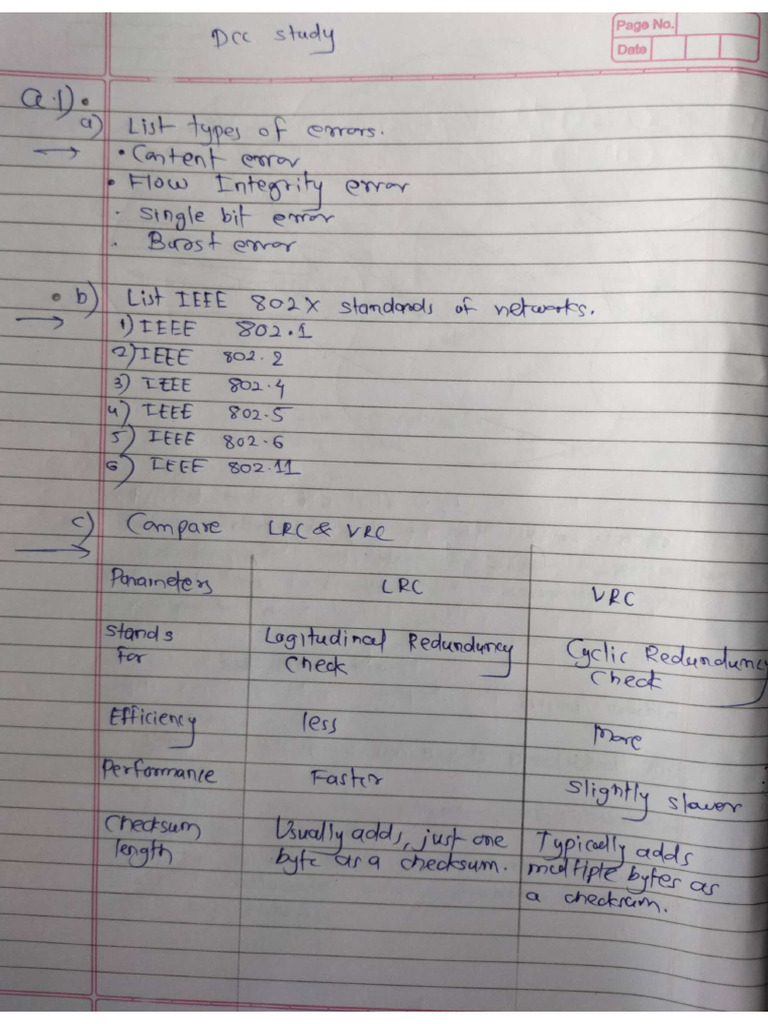 Dcc study
Page No.
Date
Q.1)
a) List types of errors.
→ • Content error
• Flow Integrity error
· Single bit error
· Burst error
• b) List IEEE 802X standards of networks.
→ 1) IEEE 802.1
2) IEEE 802.2
3) IEEE 802.4
4) IEEE 802.5
5) IEEE 802.6
6) IEEE 802.11
c) Compare LRC & VRC
→
Parameters LRC VRC
Stands for Logitudinal Redunduncy Check Cyclic Redunduncy Check
Efficiency less More
Performance Faster Slightly slower
Checksum length Usually adds, just one byte as a checksum. Typically adds multiple bytes as a checksum.